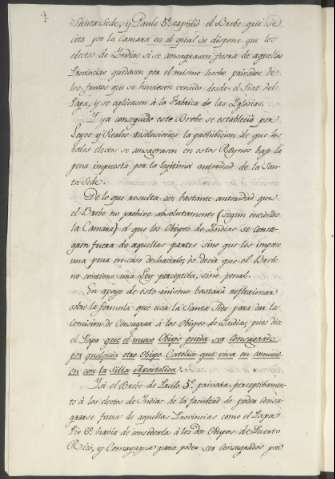 Santa Sede, y Paulo 5.º expidió el Barbe que se
cita por la Camara en el qual se dispone que los
electos de Indias si se consagrasen fuera de aquellas
Provincias quedasen por el mismo hecho privados de
los frutos que se huviesen venido desde el Fiat del
Papa, y se aplicasen á la Fabrica de las Iglesias.
Y ya conseguido este Brebe se estableció por
Leyes y Reales resoluciones la prohibicion de que los
tales electos se consagrasen en estos Reynos bajo la
pena impuesta por la legitima autoridad de la San-
ta Sede.
De lo que resulta con bastante autoridad que
el Barbe no prohive absolutamente (segun entiende
la Camara) el que los Obispos de Indias se consa-
gren fuera de aquellas partes sino que les impone
una pena en caso de hacerlo; es decir que el Barbe
no contiene una Ley preceptiva, sino penal.
En apoyo de esto mismo bastará reflexionar
sobre la formula que usa la Santa Sede para dar la
comision de Consagrar á los Obispos de Indias, pues dice
el Papa que el nuevo Obispo pueda ser consagrado
por qualquier otro Obispo Catolico que viva en comuni-
on con la Silla Apostolica.
Si el Barbe de Paulo 5.º privara preceptivamente
á los electos de Indias de la facultad de poder consa-
grarse fuera de aquellas Provincias como el Papa
Pio 6.º havia de concederla á los dos Obispos de Puerto
Rico, y Comayagua para poder ser consagrados por